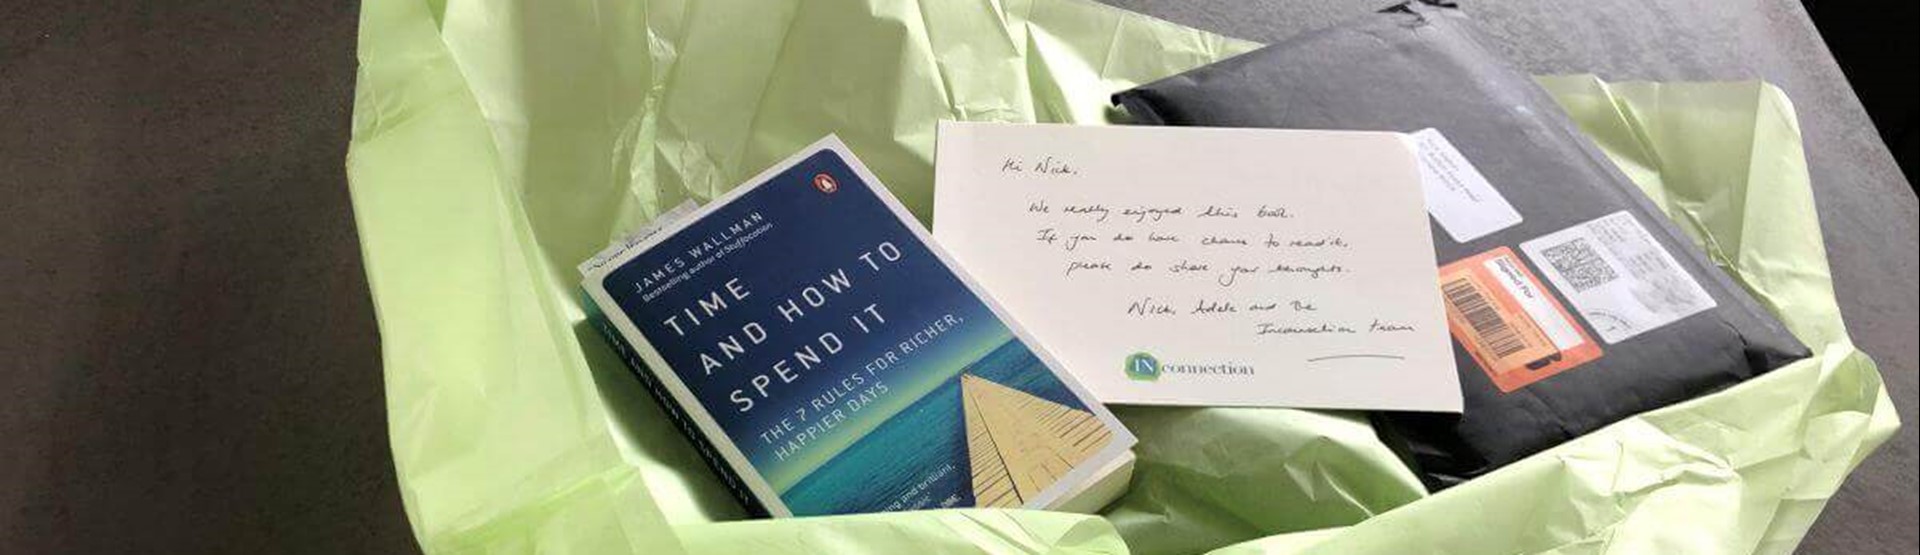 JAMES WALLMAN
Bestselling author of Stuffocation
TIME
AND HOW TO
SPEND IT
THE 7 RULES FOR RICHER,
HAPPIER DAYS
ing and brilliant,
TIME AND HOW TO SPEND IT
Hi Nick,
We really enjoyed this book.
If you do have chance to read it,
please do share your thoughts.
Nick, Adele and the
Inconnection team
INconnection
Signed For